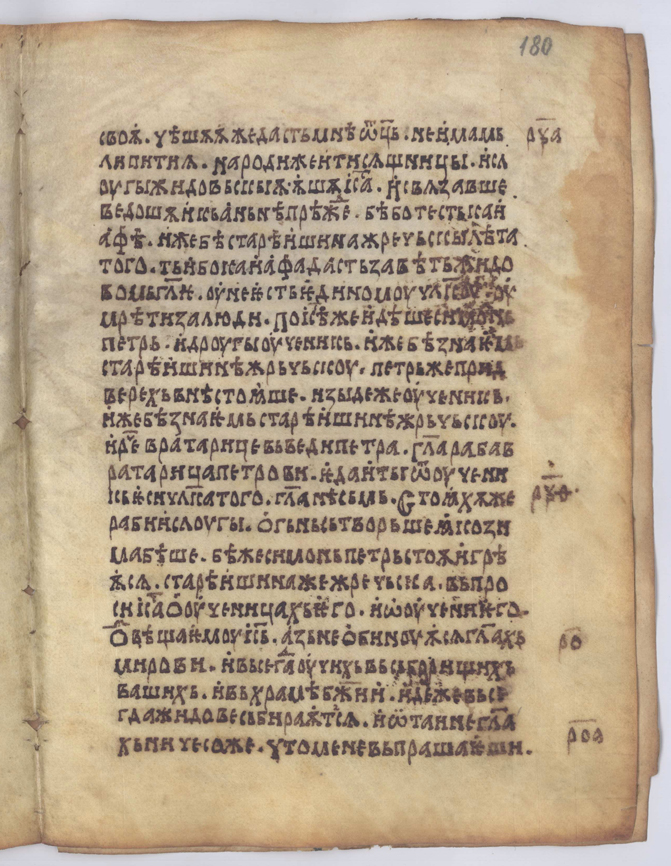 180
своѫ· чѣшѫ ѭже дастъ мнѣ ѿць· не имамь
ли пити ѧ· народи же и тисѫщници· и сл
оугы жидовьскыѩ ѩшѧ іса· и свѧзавше
ведошѧ и къ аньнѣ прѣжⷣе· бѣ бо тестъ каи
афѣ· иже бѣ старѣишина жречьскы лѣта
того· тъи бо каиафа дастъ завѣтъ жидо
вомь гл҃ѧ· оунеи естъ единомоу чл҃кѹ оу
мрѣти за люди· по іс҃ѣ же идѣше симонъ
петръ· и дроугы оученикъ· иже бѣ знаемь
старѣишинѣ жрьчьскоу· петръ же прид
верехъ внѣ стоѣше· изыде же оученикъ·
иже бѣ знаемь старѣишинѣ жрьчьскоу·
и рⷱе вратарице въведи петра· гл҃а раба в
ратарица петрови· еда и ты ѿ оучени
къ еси чл҃ка того· гл҃а нѣсьмь· Стоѣхѫ же
раби и слоугы· огьнь сътворьше ѣко зи
ма бѣше· бѣ же симонъ петръ стоѩ и грѣ
ѩсѧ· старѣишина же жречьска· въпро
си іс҃а о оученицахъ его· и о оучении его·
Ѿвѣща емоу іс҃ъ· азъ не обиноуѩсѧ гл҃ахъ
мирови· и вьсегда оучихъ въ съборищихъ
вашихъ· и въ храмѣ бж҃ии· идеже вьсе
гда жидове събираѭтсѧ· и ѿ таи не гл҃а
хъ ничесоже· чьто мене въпрашаеши·
р҃ѯа
р҃ѯѳ·
р҃о
р҃оа